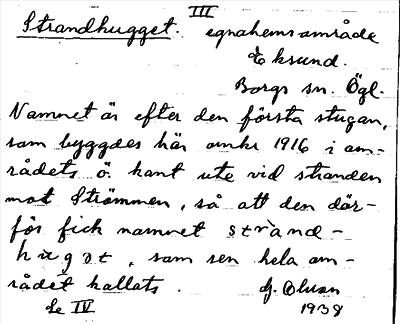 III
Strandhugget. egnahemsområde
Eksund.
Borgs sn. Ögl.
Namnet är efter den första stugan,
som byggdes här omkr 1916 i om-
rådets ö. kant ute vid stranden
mot Strömmen, så att den där-
för fick namnet strand-
hugət, som sen hela om-
rådet kallats.
Se IV
1938